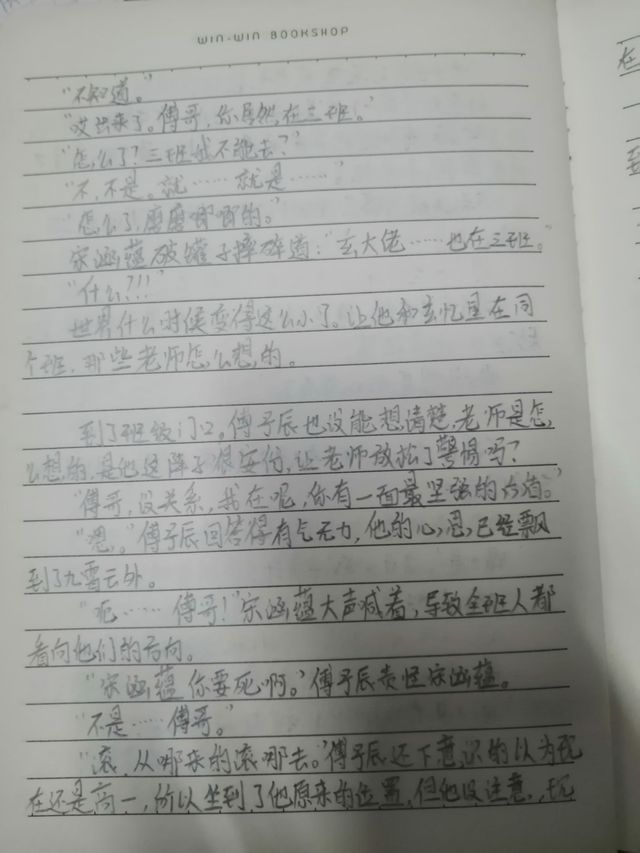 WIN-WIN BOOKSHOP
"不知道。"
"哎出来了。傅哥，你居然在三班。"
"怎么了？三班我不能去？"
"不，不是。就……就是……"
"怎么了，磨磨唧唧的。"
宋涵蕴破罐子摔碎道："玄大佬……也在三班。"
"什么?!!"
世界什么时候变得这么小了。让他和玄忆星在同
个班，那些老师怎么想的。
到了班级门口，傅予辰也没能想清楚，老师是怎
么想的，是他这阵子很安份，让老师放松了警惕吗？
"傅哥，没关系，我在呢，你有一面最坚强的后盾。"
"恩。"傅予辰回答得有气无力，他的心思已经飘
到了九霄云外。
"呃……傅哥！"宋涵蕴大声喊着，导致全班人都
看向他们的方向。
"宋涵蕴你要死啊。"傅予辰责怪宋涵蕴。
"不是……傅哥。"
"滚，从哪来的滚哪去。"傅予辰还下意识的以为现
在还是高一，所以坐到了他原来的位置，但他没注意，玩
在
到